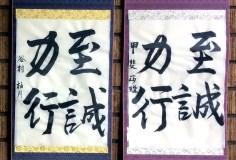 至誠
力行
谷村 柚月
至誠
力行
甲斐